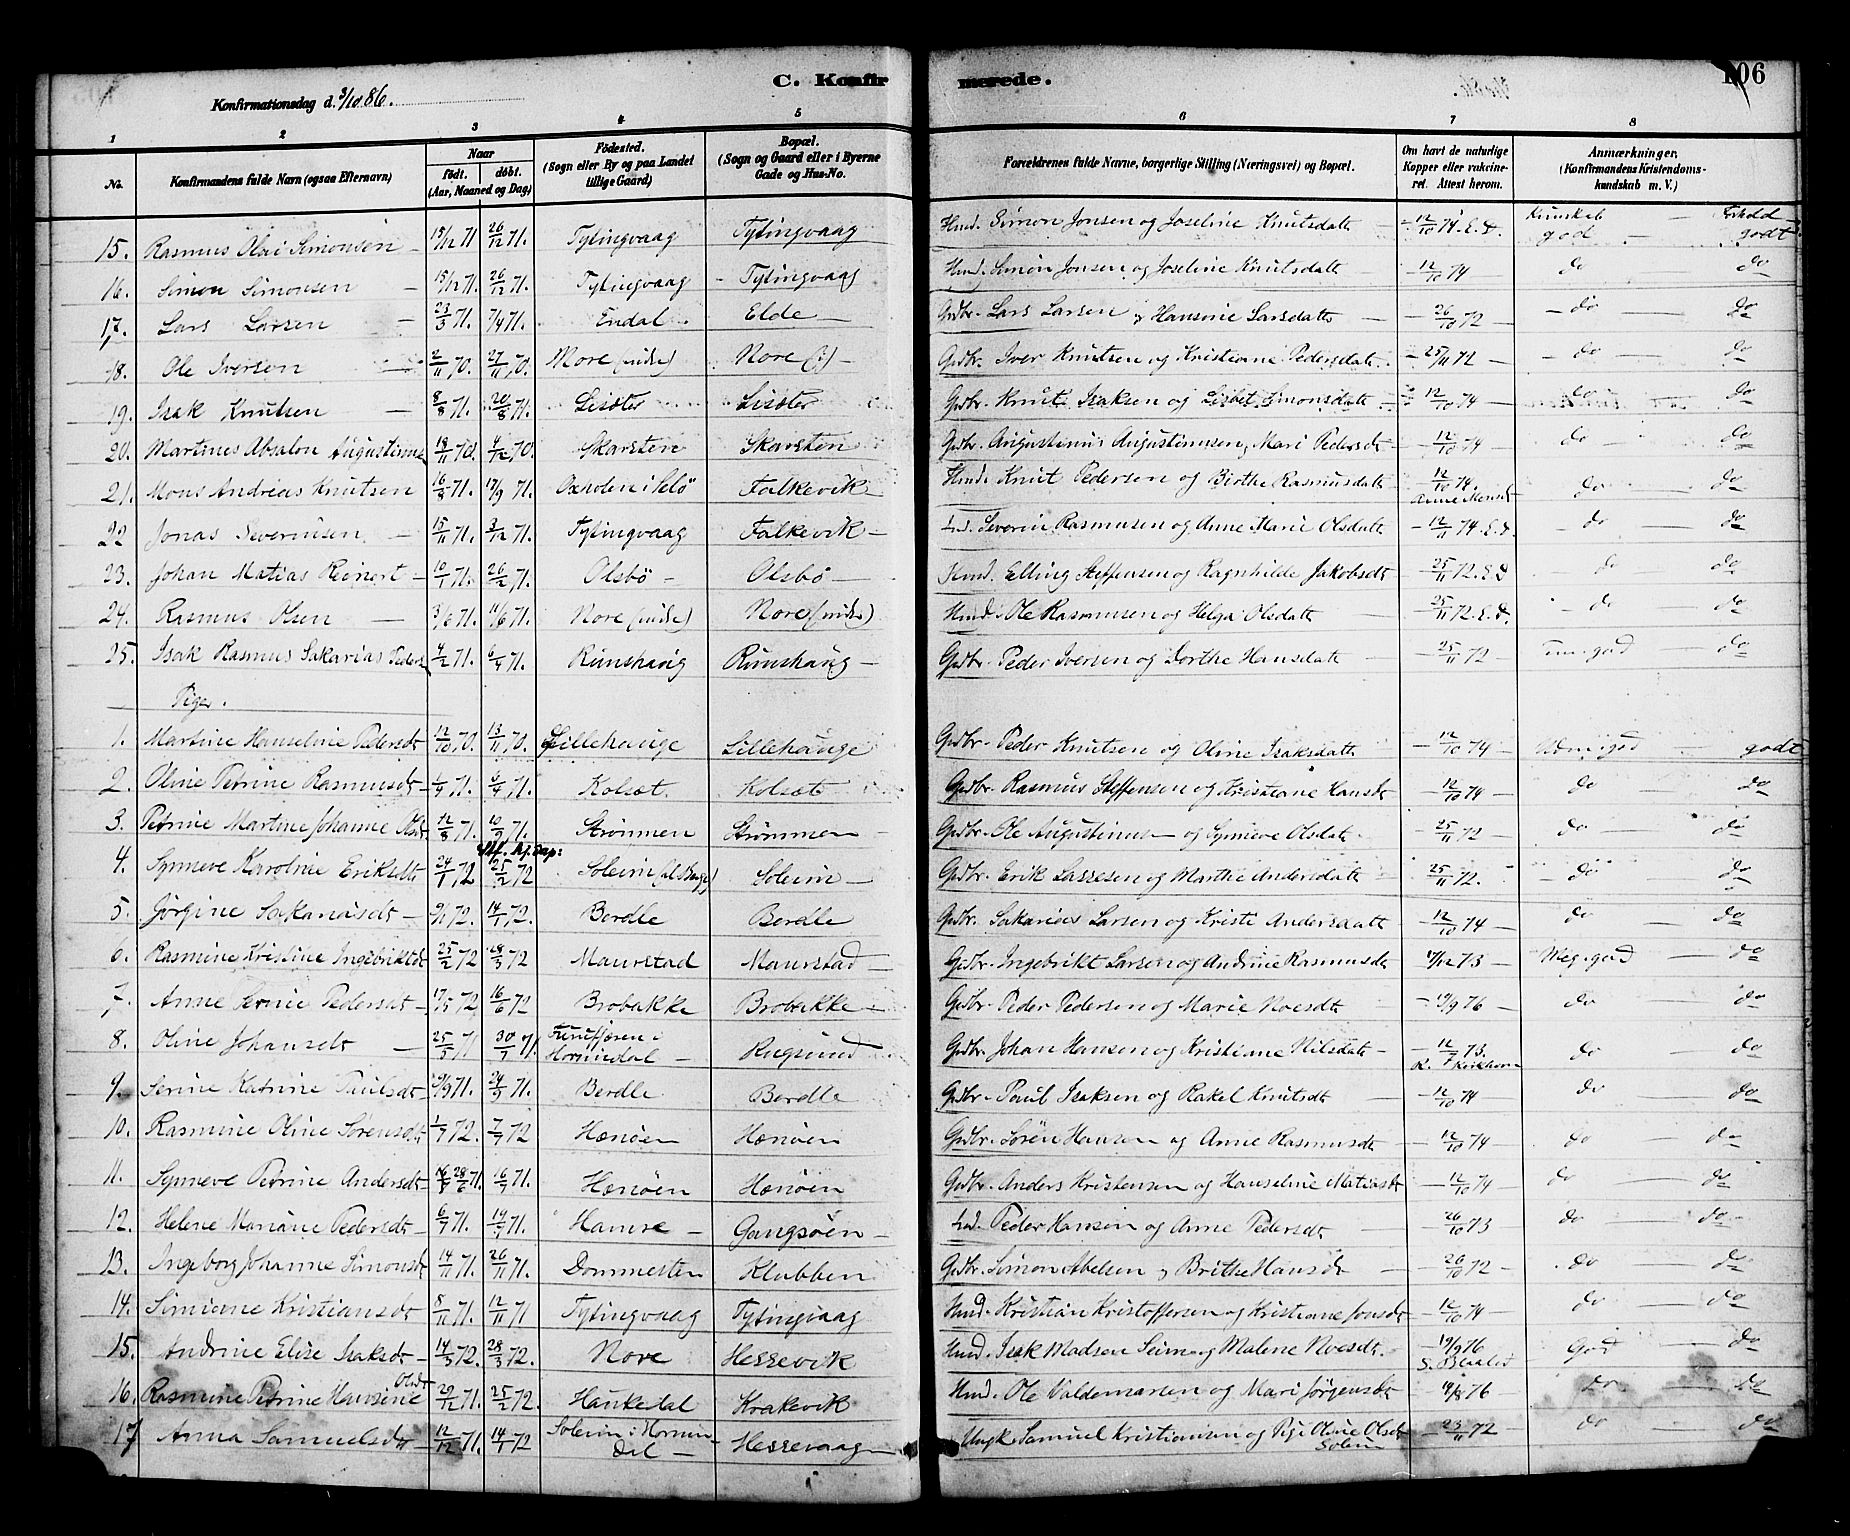 C. Konfirmerede.
106
Konfirmationsdag d. 3/10 86.
1 2 3 4 5 6 7 8
No. Konfirmandens fulde Navn (ogsaa Efternavn) Naar født. døbt. (Aar, Maaned og Dag) Fødested. (Sogn eller By og paa Landet tillige Gaard) Bopæl. (Sogn og Gaard eller i Byerne Gade og Hus-No. Forældrenes fulde Navne, borgerlige Stilling (Næringsvei) og Bopæl. Om havt de naturlige Kopper eller vakcineret. Attest herom. Anmærkninger. (Konfirmandens Kristendomskundskab m. V.)
15. Rasmus Olai Simonsen 15/12 71 26/12 71. Tytingvaag Tytingvaag Hmd. Simon Jonsen og Joseline Knutsdatt 12/10 74. Kunskab god Forhold godt
16. Simon Simonsen 15/12 71. 26/12 71. Tytingvaag Tytingvaag Hmd. Simon Jonsen og Joseline Knutsdatt 12/10 74 do do
17. Lars Larsen 23/3 71. 7/4 71. Endal Elde Gdbr. Lars Larsen og Hansine Larsdatt 26/10 72 do do
18. Ole Iversen 2/11 70. 27/11 70. Nore (indre) Nore (i) Gdbr. Iver Knutsen og Kristiane Pedersdatt 25/11 72 do do
19. Isak Knutsen 8/8 71. 20/8 71. Lisæter Lisæter Gdbr. Knut Isaksen og Lisbet Simonsdatt 12/10 74 do do
20. Martinus Absalon Augustinus 18/11 70. 4/12 70. Skarsten Skarsten Gdbr. Augustinus Augustinusen, Mari Pedersdt 12/10 74 do do
21. Mons Andreas Knutsen 16/8 71. 17/9 71. Falkevik Hmd. Knut Pedersen og Birthe Rasmusdatt 12/10 74. do do
22 Jonas Severinsen 15/11 71. 3/12 71. Tytingvaag Falkevik Severin Rasmusen og Anne Marie Olsdatt 12/11 74. do do
23. Johan Matias Reinert 10/1 71. 26/2 71. Olsbö Olsbö Hmd. Elling Steffensen og Ragnhilde Jakobsdt 25/11 72. do do
24. Rasmus Olsen 3/6 71. 11/6 71. Nore (indre) Nore (indre) Hmd. Ole Rasmusen og Helga Olsdatt 25/11 72. do do
25. Isak Rasmus Sakarias Peders 4/2 71. 6/4 71. Runshaug Runshaug Gdbr. Peder Iversen og Dorthe Hansdatt 25/11 72 do
Piger.
1. Martine Hanseline Pedersdt 12/10 70. 13/11 70. Lillehauge Lillehauge Gdbr. Peder Knutsen og Oline Isaksdatt 12/10 74 godt
2. Oline Petrine Rasmusdt 1/4 71. 6/4 71. Kolsæt Kolsæt Gdbr. Rasmus Steffensen og Kristiane Hansdt 12/10 74 do do
3. Petrine Martine Johanne Olsdt 12/8 71. 10/9 71. Strømmen Strømmen Gdbr. Ole Augustinus og Synneve Olsdatt 25/11 72 do do
4. Synneve Karoline Eriksdt 24/1 72 25/2 72 Soleim Soleim Gdbr. Erik Lassesen og Marthe Andersdatt 25/11 72. do do
5. Jørgine Sakariasdt 9/1 72. 14/1 72. Berdle Berdle Gdbr. Sakarias Larsen og Kristi Andersdatt 12/10 74 do do
6. Rasmine Kristine Ingebriktdt 25/2 72 28/3 72 Maurstad Maurstad Gdbr. Ingebrikt Larsen og Andrine Rasmusdt 17/12 73 Meg. god do
7. Anne Serine Pedersdt 17/5 72 16/6 72 Brobakke Brobakke Gdbr. Peder Pedersen og Marie Noesdt 19/9 76 do do
8. Oline Johansdt 25/5 71 30/7 71. Hornindal Rugsund Gdbr. Johan Hansen og Kristiane Nilsdatt 12/7 73. do do
9. Serine Katrine Paulsdt 9/3 71. 24/3 71. Berdle Berdle Gdbr. Paul Isaksen og Rakel Knutsdt 12/10 74 do do
10. Rasmine Oline Sørensdt 1/7 72. 7/7 72 Hænøen Hænøen Gdbr. Søren Hansen og Anne Rasmusdt 12/10 74 do do
11. Synneve Petrine Andersdt 28/6 71. 16/7 71. Hænøen Hænøen Gdbr. Anders Kristensen og Hanseline Matiasdt 12/10 74 do do
12. Helene Mariane Pedersdt 6/7 71. 14/7 71. Hamre Gangsøen Peder Hansen og Anne Pedersdt 26/10 73 do do
13. Ingeborg Johanne Simonsdt 14/11 71. 26/11 71. Dommesten Klubben Gdbr. Simon Abelsen og Brithe Hansdt 26/10 72 do do
14. Simiane Kristiansdt 8/11 71. 12/11 71 Tytingvaag Tytingvaag Hmd. Kristian Kristoffersen og Kristiane Jonsdt 12/10 74 do do
15. Andrine Elise Isaksdt 14/3 72. 28/3 72. Nore Hessevik Hmd. Isak Madsen Seim og Malene Noesdt. 19/9 76 God do
16. Rasmine Petrine Hansine Olsdt 29/12 71. 25/2 72. Haukedal Krakevik Hmd. Ole Valdemarsen og Mari Jørgensdt 76 do do
17 Anna Samuelsdt 12/12 71. 14/1 72 Soleim i Hornindal Hessevaag Ungk. Samuel Kristiansen og Pige Oline Olsdt Solem 23/11 72 do do